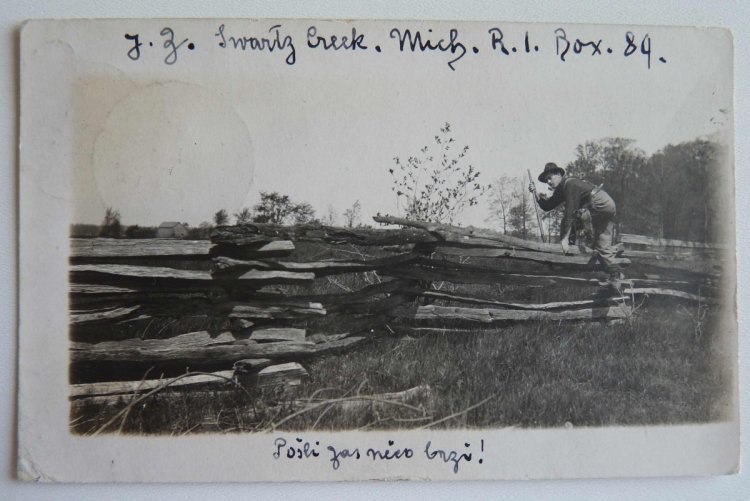 J. Z. Swartz Creek. Mich. R. 1. Box. 89.
Pošli zas něco brzi!